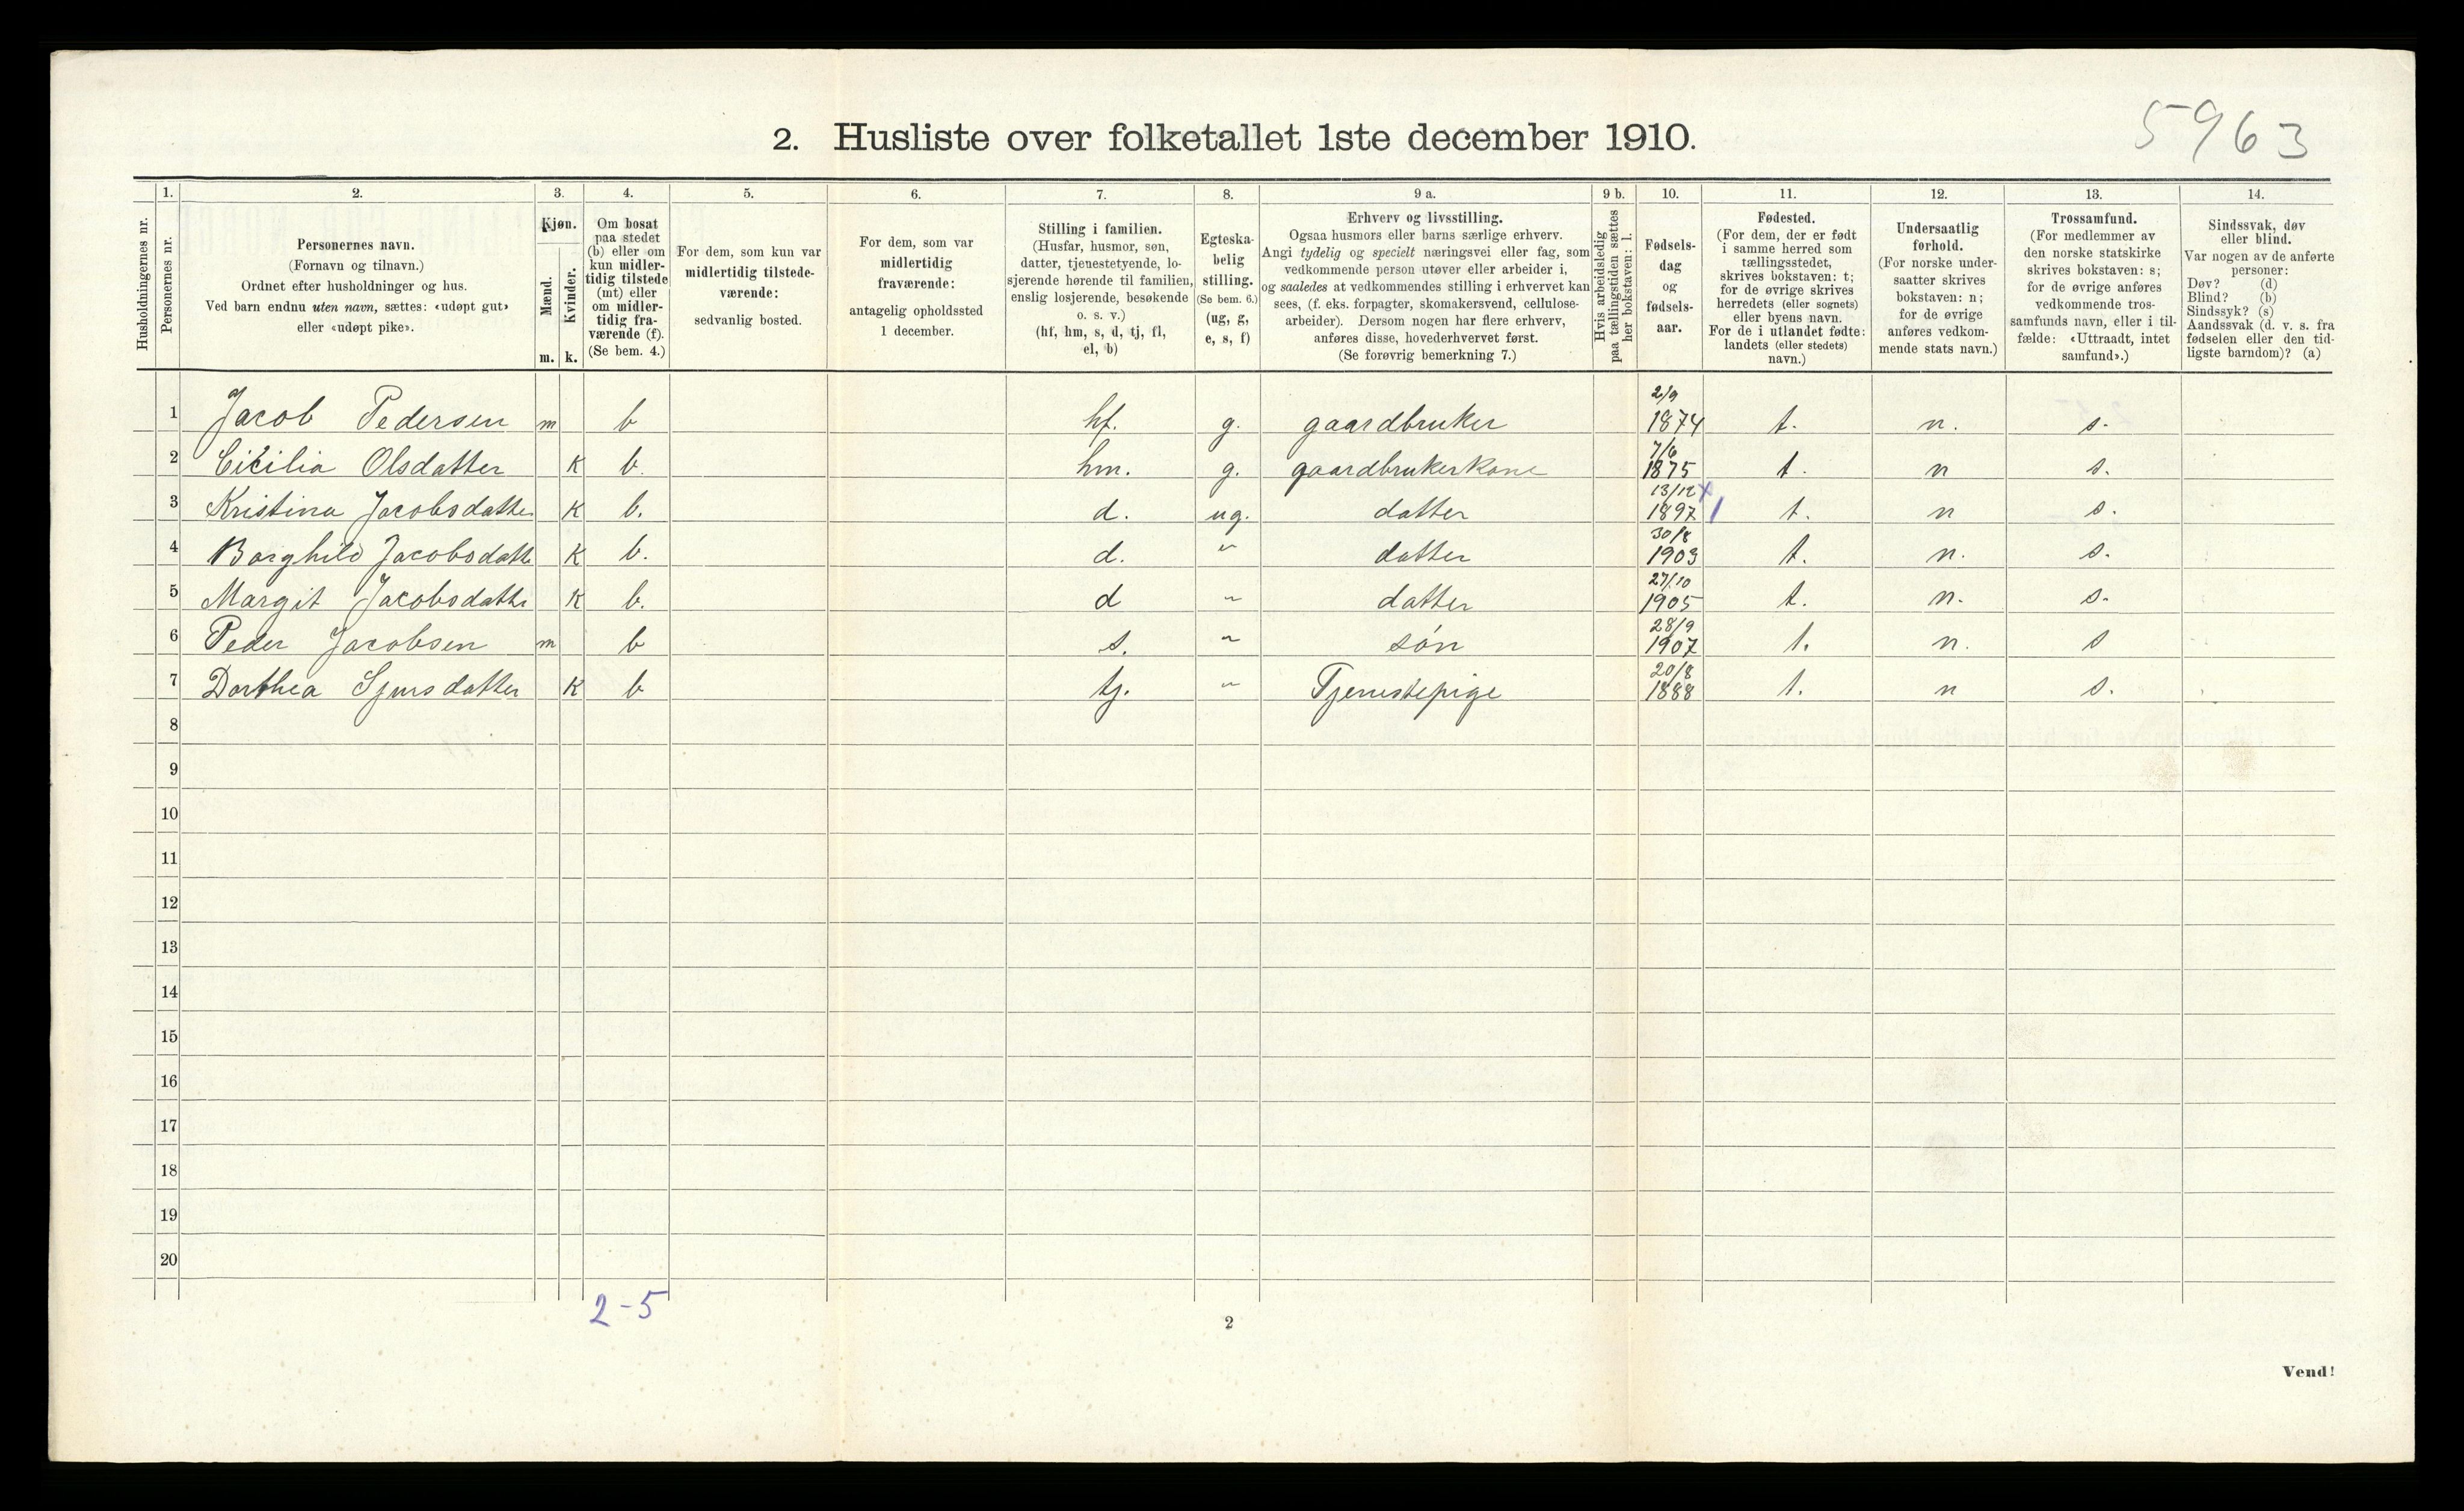 5963
2. Husliste over folketallet 1ste december 1910.
Husholdningernes nr.
1. Personernes nr.
2. Personernes navn. (Fornavn og tilnavn.) Ordnet efter husholdninger og hus. Ved barn endnu uten navn, sættes: «udøpt gut» eller «udøpt pike».
3. Kjøn. Mænd. m. Kvinder. k.
4. Om bosat paa stedet (b) eller om kun midlertidig tilstede (mt) eller om midlertidig fraværende (f). (Se bem. 4.)
5. For dem, som kun var midlertidig tilstedeværende: sedvanlig bosted.
6. For dem, som var midlertidig fraværende: antagelig opholdssted 1 december.
7. Stilling i familien. (Husfar, husmor, søn, datter, tjenestetyende, losjerende hørende til familien, enslig losjerende, besøkende o. s. v.) (hf, hm, s, d, tj, fl, el, b)
8. Egteskabelig stilling. (Se bem. 6.) (ug, g, e, s, f)
9 a. Erhverv og livsstilling. Ogsaa husmors eller barns særlige erhverv. Angi tydelig og specielt næringsvei eller fag, som vedkommende person utøver eller arbeider i, og saaledes at vedkommendes stilling i erhvervet kan sees, (f. eks. forpagter, skomakersvend, cellulosearbeider). Dersom nogen har flere erhverv, anføres disse, hovederhvervet først. (Se forøvrig bemerkning 7.)
9 b. Hvis arbeidsledig paa tællingstiden sættes her bokstaven: l.
10. Fødselsdag og fødselsaar.
11. Fødested. (For dem, der er født i samme herred som tællingsstedet, skrives bokstaven: t; for de øvrige skrives herredets (eller sognets) eller byens navn. For de i utlandet fødte: landets (eller stedets) navn.)
12. Undersaatlig forhold. (For norske undersaatter skrives bokstaven: n; for de øvrige anføres vedkommende stats navn.)
13. Trossamfund. (For medlemmer av den norske statskirke skrives bokstaven: s; for de øvrige anføres vedkommende trossamfunds navn, eller i tilfælde: «Uttraadt, intet samfund».)
14. Sindssvak, døv eller blind. Var nogen av de anførte personer: Døv? (d) Blind? (b) Sindssyk? (s) Aandssvak (d. v. s. fra fødselen eller den tidligste barndom)? (a)
1 Jacob Pedersen m b hf. g. gaardbruker 2/9 1874 t. n. s.
2 Cicilia Olsdatter K b. hm. g. gaardbrukerkone 7/6 1875 t. n s.
3 Kristina Jacobsdatter K b. d. ug. datter 13/12 1897 t. n s.
4 Borghild Jacobsdatt K b. d. " datter 30/8 1903 t. n. s.
5 Margit Jacobsdatte K b. d " datter 27/10 1905 t. n. s.
6 Peder Jacobsen m b s. " søn 28/9 1907 t. n. s
7 Dorthea Sjursdatter K b tj. " Tjenestepige 20/8 1888 t. n s.
8
9
10
11
12
13
14
15
16
17
18
19
20
2-5
2
Vend!